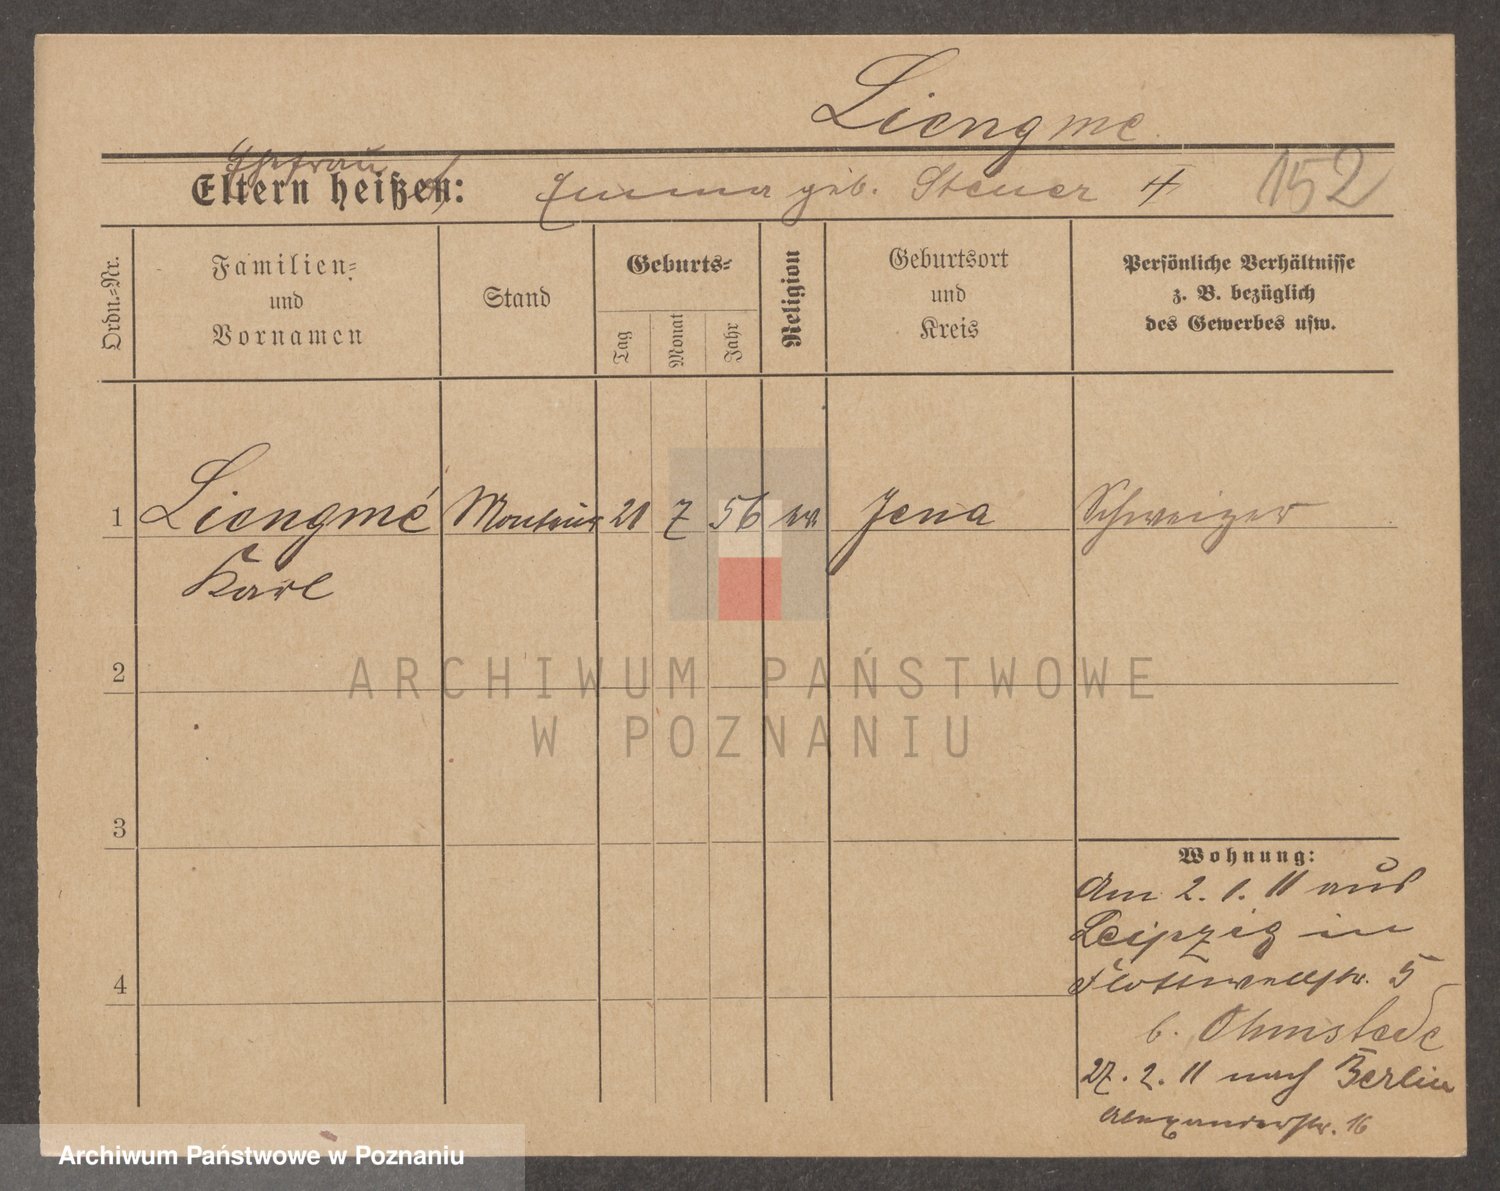 Liengme
Ehefrau
Eltern heißen: Emma geb. Steuer 152
Ordn.=Nr.
Familien=
und
Vornamen
Stand
Geburts=
Tag
Monat
Jahr
Religion
Geburtsort
und
Kreis
Persönliche Verhältnisse
z. B. bezüglich
des Gewerbes usw.
1 Liengmé Monteur 21 7 56 ev Jena Schweizer
Karl
2
3
4
Wohnung:
Am 2. 1. 11 aus
Leipzig in
Flottwellstr. 5
b. Ohmstede
27. 2. 11 nach Berlin
Alexanderstr. 16
ARCHIWUM PAŃSTWOWE
W POZNANIU
Archiwum Państwowe w Poznaniu